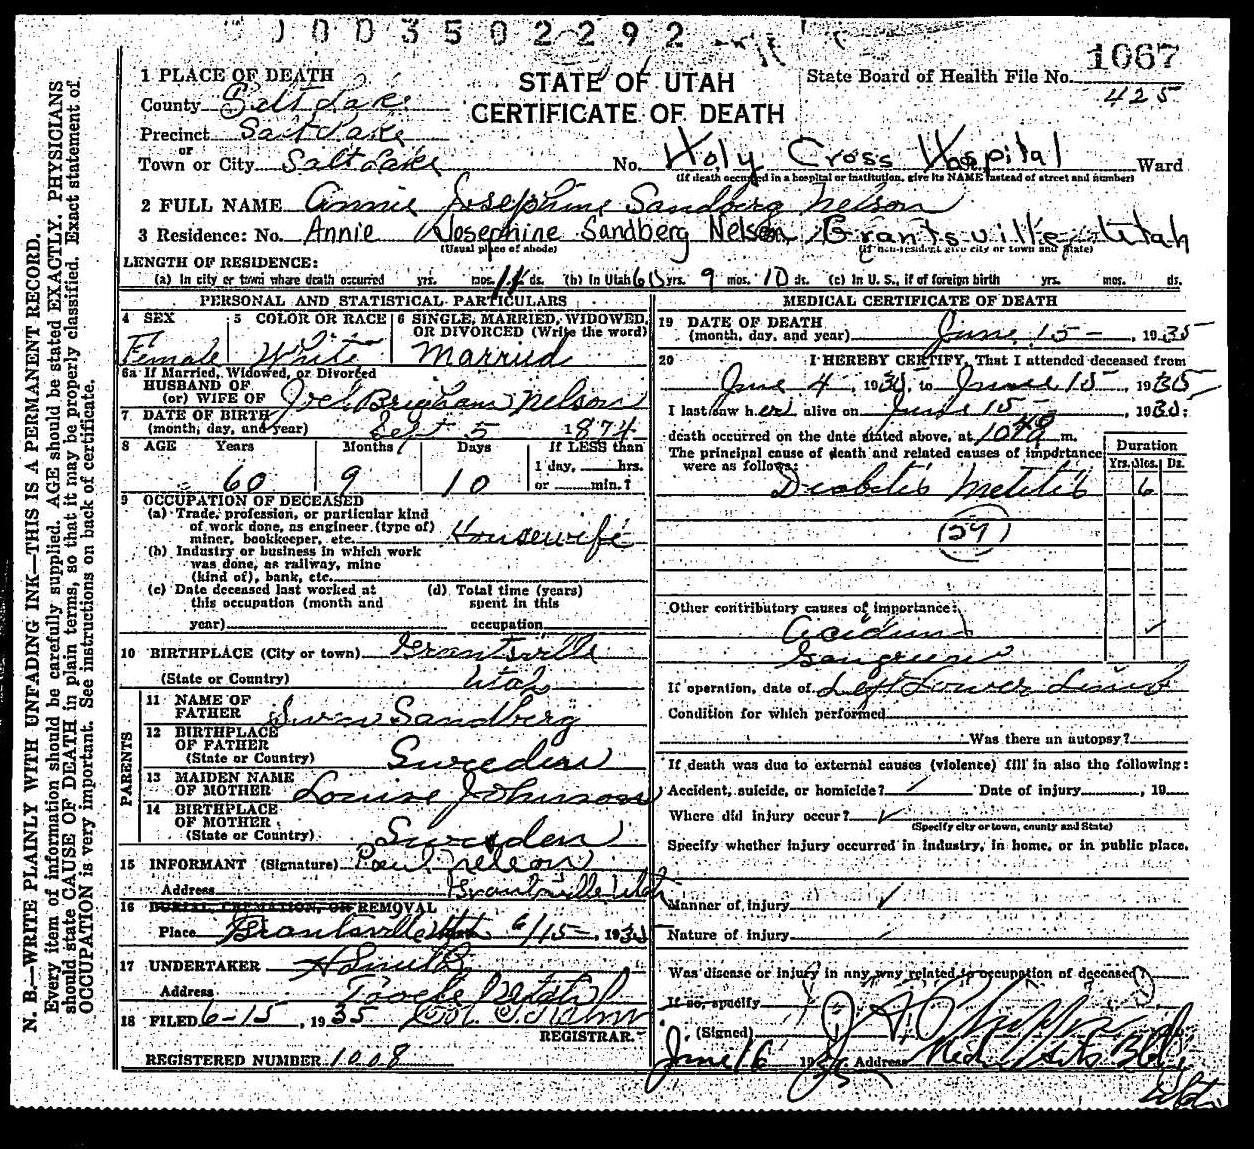 0003502292
1067
STATE OF UTAH
CERTIFICATE OF DEATH
State Board of Health File No.
425
1 PLACE OF DEATH
County Salt Lake
Precinct Salt Lake
or
Town or City Salt Lake No. Holy Cross Hospital Ward
(If death occurred in a hospital or institution, give its NAME instead of street and number)
2 FULL NAME Annie Josephine Sandberg Nelson
3 Residence: No. Annie Josephine Sandberg Nelson, Grantsville, Utah
(Usual place of abode) (If non-resident give city or town and State)
LENGTH OF RESIDENCE:
(a) In city or town where death occurred yrs. mos. 11 ds. (b) In Utah 60 yrs. 9 mos. 10 ds. (c) In U. S., if of foreign birth yrs. mos. ds.
PERSONAL AND STATISTICAL PARTICULARS
4 SEX 5 COLOR OR RACE 6 SINGLE, MARRIED, WIDOWED, OR DIVORCED (Write the word)
Female White Married
6a If Married, Widowed, or Divorced
HUSBAND OF
(or) WIFE OF Joel Brigham Nelson
7 DATE OF BIRTH
(month, day, and year) Sept 5 1874
8 AGE Years Months Days If LESS than
1 day, hrs.
60 9 10 or min.?
9 OCCUPATION OF DECEASED
(a) Trade, profession, or particular kind
of work done, as engineer (type of)
miner, bookkeeper, etc. Housewife
(b) Industry or business in which work
was done, as railway, mine
(kind of), bank, etc.
(c) Date deceased last worked at (d) Total time (years)
this occupation (month and spent in this
year) occupation
10 BIRTHPLACE (City or town) Grantsville
(State or Country) Utah
PARENTS
11 NAME OF
FATHER Swen Sandberg
12 BIRTHPLACE
OF FATHER
(State or Country) Sweden
13 MAIDEN NAME
OF MOTHER Louise Johnson
14 BIRTHPLACE
OF MOTHER
(State or Country) Sweden
15 INFORMANT (Signature) Paul Nelson
Address Grantsville, Utah
16 BURIAL, CREMATION, OR REMOVAL
Place Grantsville Utah 6/15, 1935
17 UNDERTAKER
Address Tooele Utah
18 FILED 6-15, 1935
REGISTRAR.
REGISTERED NUMBER 1008
MEDICAL CERTIFICATE OF DEATH
19 DATE OF DEATH
(month, day, and year) June 15, 1935
20 I HEREBY CERTIFY, That I attended deceased from
June 4, 1935, to June 15, 1935
I last saw her alive on June 15, 1935;
death occurred on the date stated above, at m.
The principal cause of death and related causes of importance
were as follows:
Duration
Yrs. Mos. Ds.
Diabetis Metitis 6
(59)
Other contributory causes of importance:
Gangreene
If operation, date of Left Lower Limb
Condition for which performed
Was there an autopsy?
If death was due to external causes (violence) fill in also the following:
Accident, suicide, or homicide? Date of injury , 19
Where did injury occur?
(Specify city or town, county and State)
Specify whether injury occurred in industry, in home, or in public place.
Manner of injury
Nature of injury
Was disease or injury in any way related to occupation of deceased?
If so, specify
(Signed)
June 16 1935 Address Med Arts Bldg
N. B.—WRITE PLAINLY WITH UNFADING INK—THIS IS A PERMANENT RECORD.
Every item of information should be carefully supplied. AGE should be stated EXACTLY. PHYSICIANS
should state CAUSE OF DEATH in plain terms, so that it may be properly classified. Exact statement of
OCCUPATION is very important. See instructions on back of certificate.